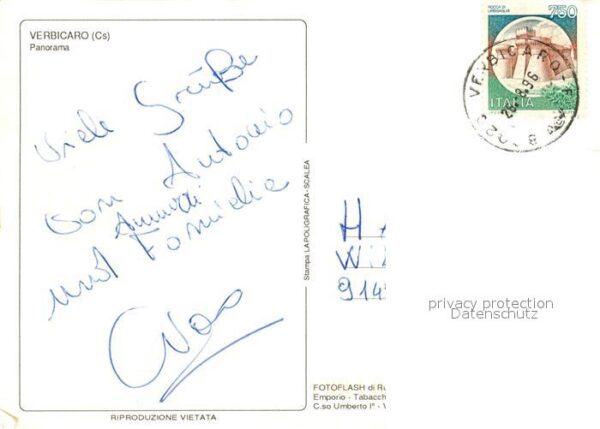 VERBICARO (Cs)
Panorama
Viele Grüße
von Antonio
und Familie
Ciao
RIPRODUZIONE VIETATA
Stampa LAPOLIGRAFICA - SCALEA
750
ROCCA DI URBISAGLIA
ITALIA
VERBICARO
H
W
914
privacy protection
Datenschutz
FOTOFLASH di
Emporio - Tabacch
C.so Umberto I° - V